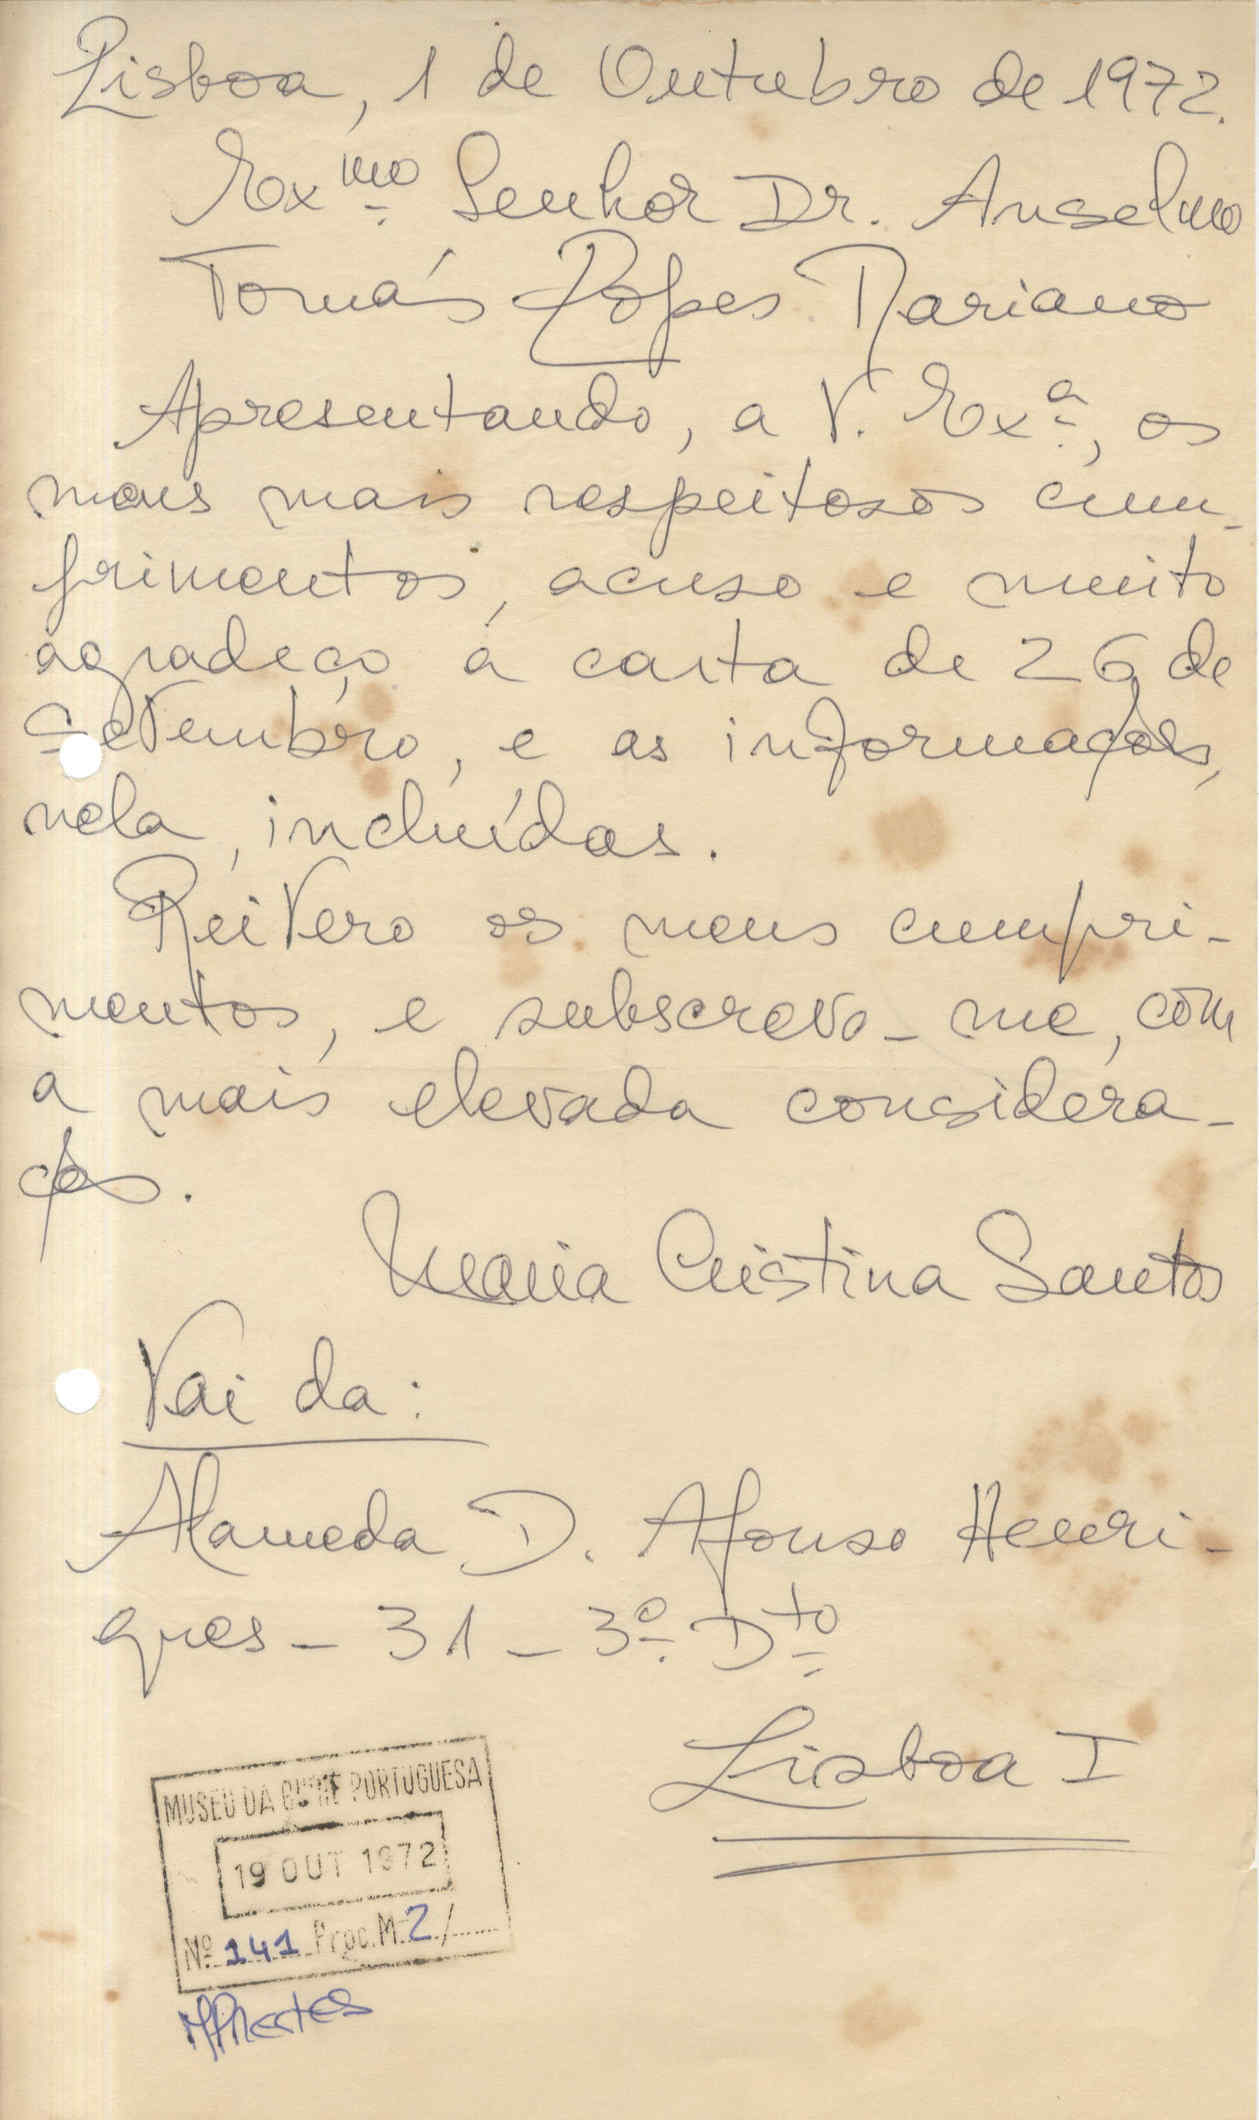 Lisboa, 1 de Outubro de 1972.
Exmo Senhor Dr. Anselmo
Tomás Lopes Mariano
Apresentando, a V. Exa, os
meus mais respeitosos cum-
primentos, acuso e muito
agradeço a carta de 26 de
Setembro, e as informações,
nela, incluídas.
Reitero os meus cumpri-
mentos, e subscrevo-me, com
a mais elevada considera-
ção.
Maria Cristina Santos
Vai da:
Alameda D. Afonso Henri-
ques - 31 - 3º Dto
Lisboa I
MUSEU DA GUINÉ PORTUGUESA
19 OUT 1972
Nº 141 Proc. M. 2/